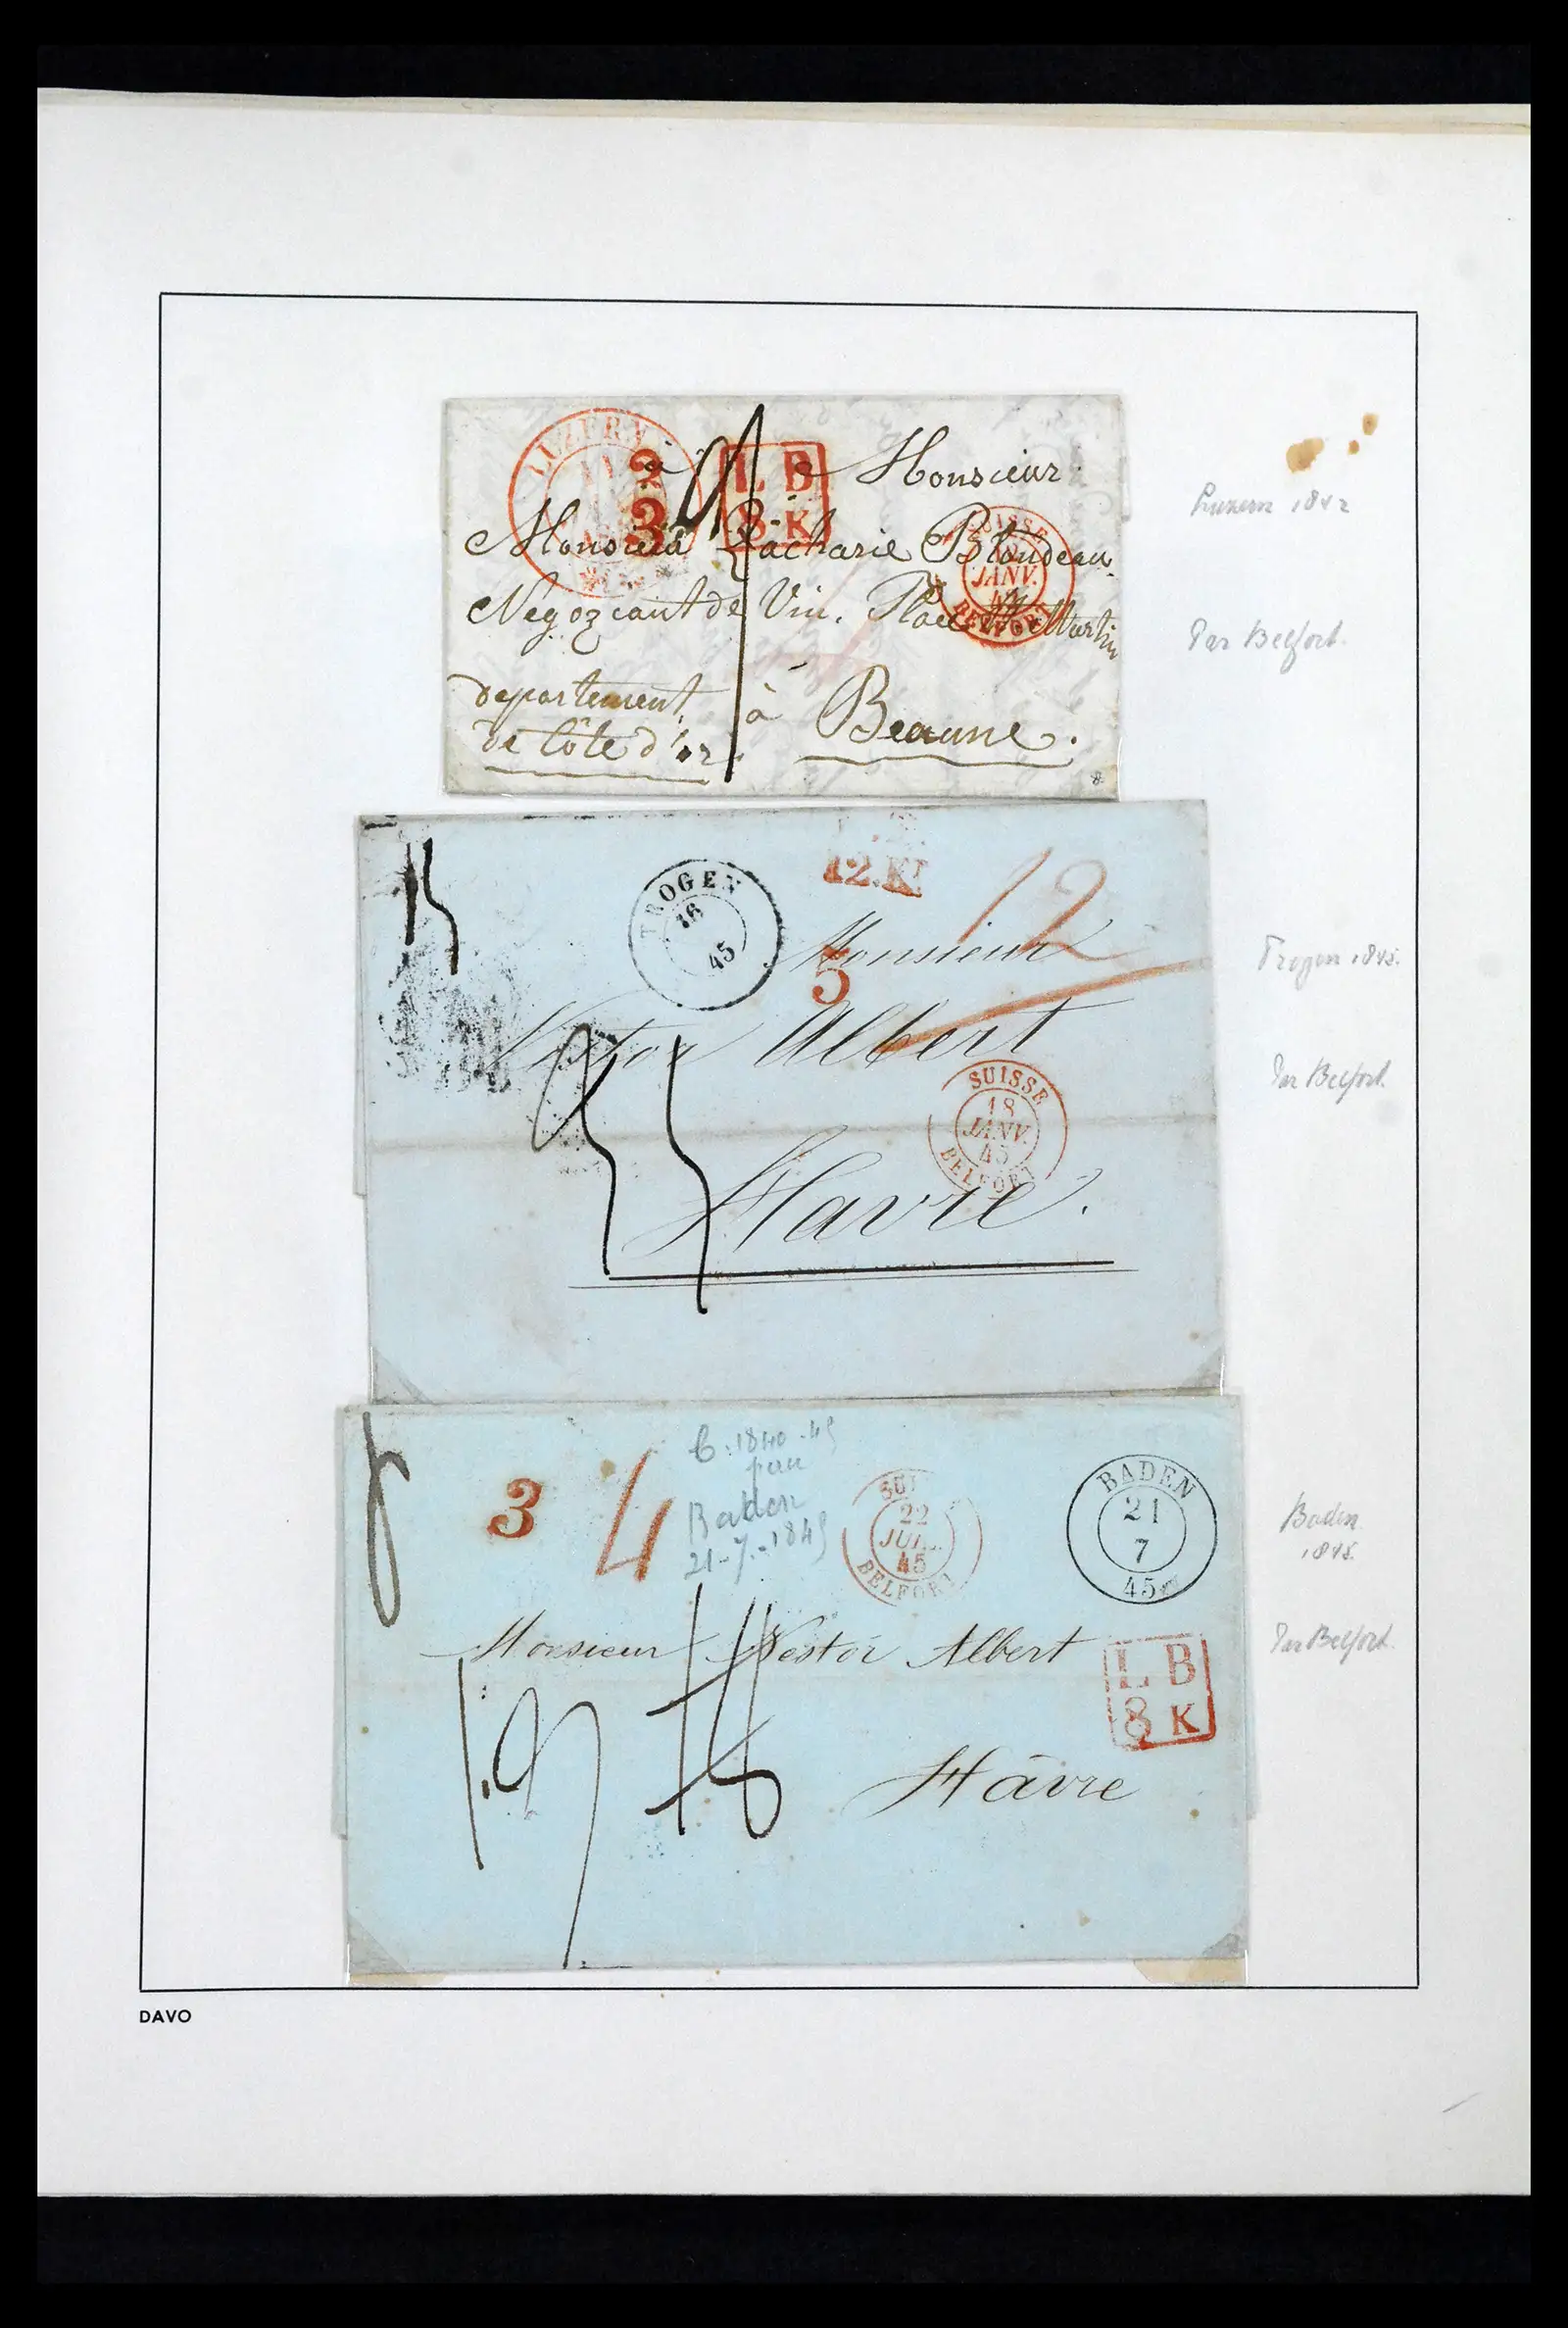 LUZERN
2
3
L B
8 K
à Monsieur
Monsieur Zacharie Blondeau
Negozcant de Vin. Place St Martin
SUISSE
JANV.
BELFORT
departement
de Côte d'or
à Beaune.
Luzern 1842
Par Belfort.
TROGEN
16
45
12.Kr
12
Monsieur
5
Nestor Albert
SUISSE
18
JANV.
45
BELFORT
Havre.
Trogen 1845.
Par Belfort.
3
4
C. 1840-45
Baden
21-7-1845
SUI
22
JUIL.
45
BELFORT
BADEN
21
7
45
Monsieur Nestor Albert
L B
8 K
Hâvre
Baden
1845.
Par Belfort.
DAVO